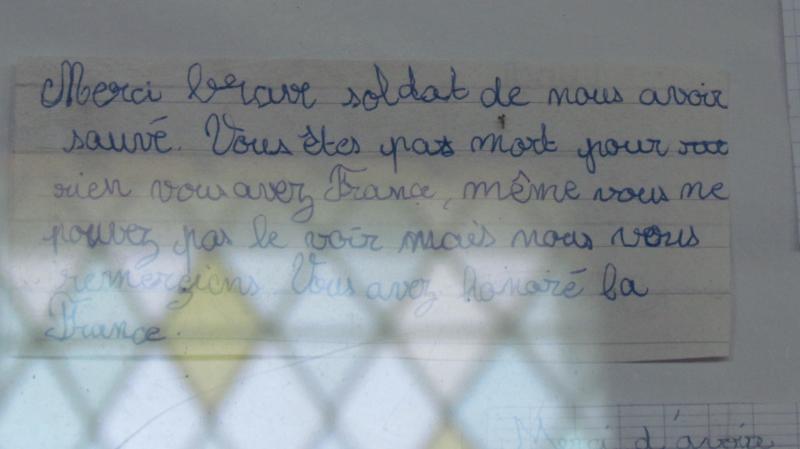 Merci brave soldat de nous avoir
sauvé. Vous êtes pas mort pour
rien vous avez France, même vous ne
pouvez pas le voir mais nous vous
remercions. Vous avez honoré la
France.
Merci d'avoir